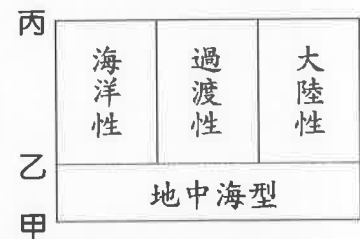 丙
海洋性
過渡性
大陸性
乙
地中海型
甲